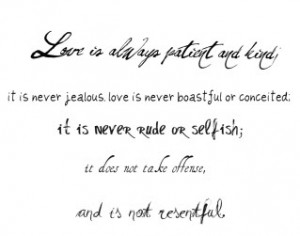 Love is always patient and kind;
it is never jealous. love is never boastful or conceited;
it is never rude or selfish;
it does not take offense,
and is not resentful.